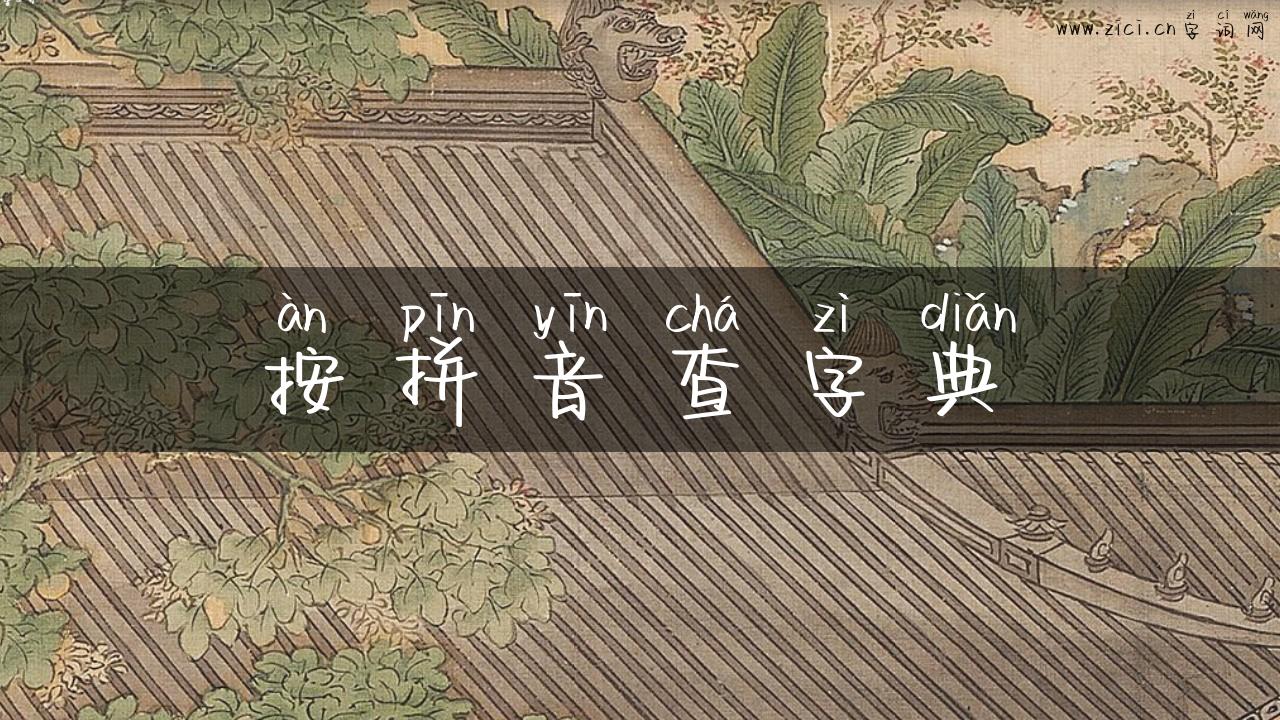 zì cí wǎng
www.zici.cn 字词网
àn pīn yīn chá zì diǎn
按拼音查字典